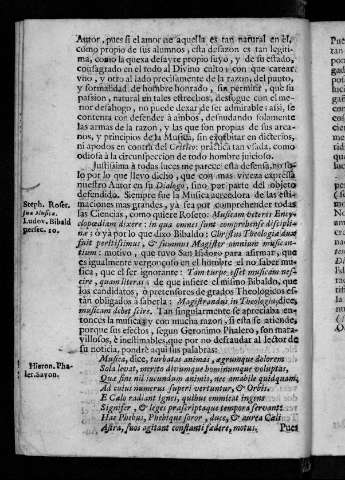 Autor, pues si el amor no aquella es tan natural en èl,
como propio de sus alumnos, esta desazon es tan legiti-
ma, como la quexa desayre propio suyo, y de su estado,
consagrado en el todo al Divino culto: con que carear
vno, y otro al lado precisamente de la razon, del punto,
y formalidad de hombre honrado, sin permitir, què su
passion, natural en tales estrechos, desfogue con el me-
nor desahogo, no puede dexar de ser admirable: assi, se
contenta con defender à ambos, desnudando solamente
las armas de la razon, y las que son propias de sus arca-
nos, y principios de la Musica, sin exorbitar en dicterios,
ni apodos en contra del Critico: pràctica tan vsada, como
odiosa à la circunspeccion de todo hombre juicioso.
Justissima à todas luces me parece esta defensa, no so-
lo por lo que llevo dicho, que con mas viveza expressa
nuestro Autor en su Dialogo, sino por parte del objeto
defendido. Siempre fue la Musica acreedora de las esti-
maciones mas grandes, yà sea por comprehender todas
las Ciencias, como quiere Rofeto: Musicam veteris Ency-
clopædiam dixere: in qua omnes sunt comprehensæ discipli-
næ: ò yà por lo que dixo Bibaldo: Christus Theologiæ dux
fuit peritissimus, & summus Magister omnium musican-
tium: motivo, que tuvo San Isidoro para afirmar, que
es igualmente vergonçoso en el hombre el no saber mu-
sica, que el ser ignorante: Tam turpe esset musicam nes-
cire, quam literas: de que infiere el mismo Bibaldo, que
los candidatos, ò pretensores de grados Theologicos es-
tàn obligados à saberla: Magistrandus in Theologia, dice,
musicam debet scire. Tan singularmente se apreciaba en-
tonces la musica; y con mucha razon, si esta se atiende,
porque sus efectos, segun Geronimo Phalero, son mara-
villosos, è inestimables, que por no defraudar al lector de
su noticia, pondrè aqui sus palabras:
Musica, dice, turbatas animas, ægrumque dolorem
Sola levat, merito divumque hominumque voluptas,
Qua sine nil iucundum animis, nec amabile quidquam,
Ad cuius numeros superi vertuntur, & Orbis.
E Cælo radiant ignei, quibus emmicat ingens
Signifer, & leges præscriptaque tempora servant:
Hac Phebus, Phebique soror, duce, & aurea Cæli
Astra, suos agitant constanti fædere, motus.
Pues
Steph. Rofet.
sua Musica.
Ludov. Bibald
perfec. 10.
Hieron. Pha-
ler. Sayon.